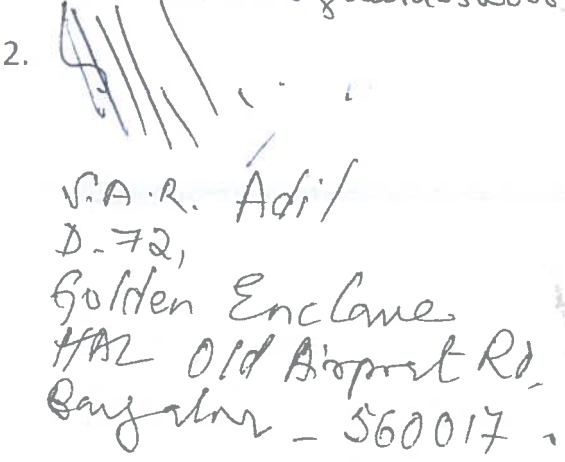 2.
S.A.R. Adil
D-72,
Golden Enclave
HAL Old Airport Rd.
Bangalore - 560017.